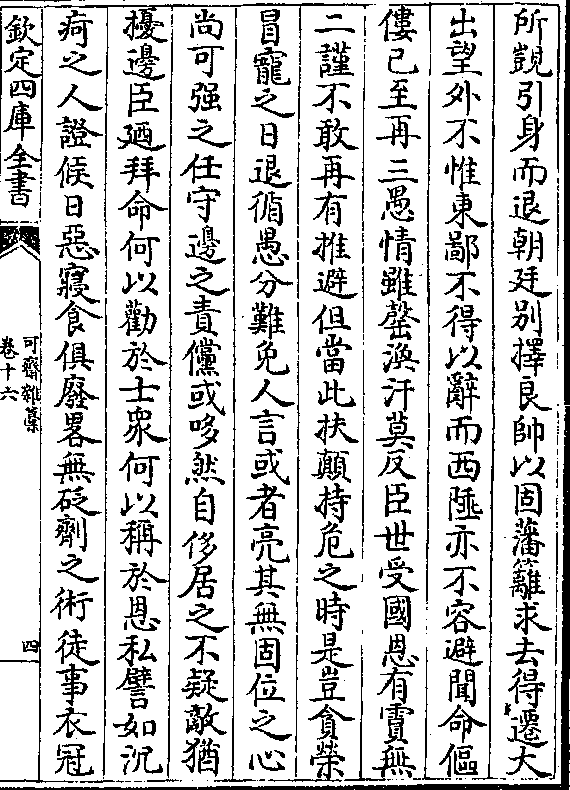 所覬引身而退朝廷别擇良帥以固藩籬求去得遷大
出望外不惟東鄙不得以辭而西陲亦不容避聞命傴
僂已至再三愚情雖罄渙汗莫反臣世受國恩有霣無
二謹不敢再有推避但當此扶顛持危之時是豈貪榮
冒寵之日退循愚分難免人言或者亮其無固位之心
尚可强之任守邊之責儻或哆然自侈居之不疑敵猶
擾邊臣廼拜命何以勸於士衆何以稱於恩私譬如沉
疴之人證候日惡寢食俱廢畧無砭劑之術徒事衣冠
欽定四庫全書
可齋雜藁
卷十六
四